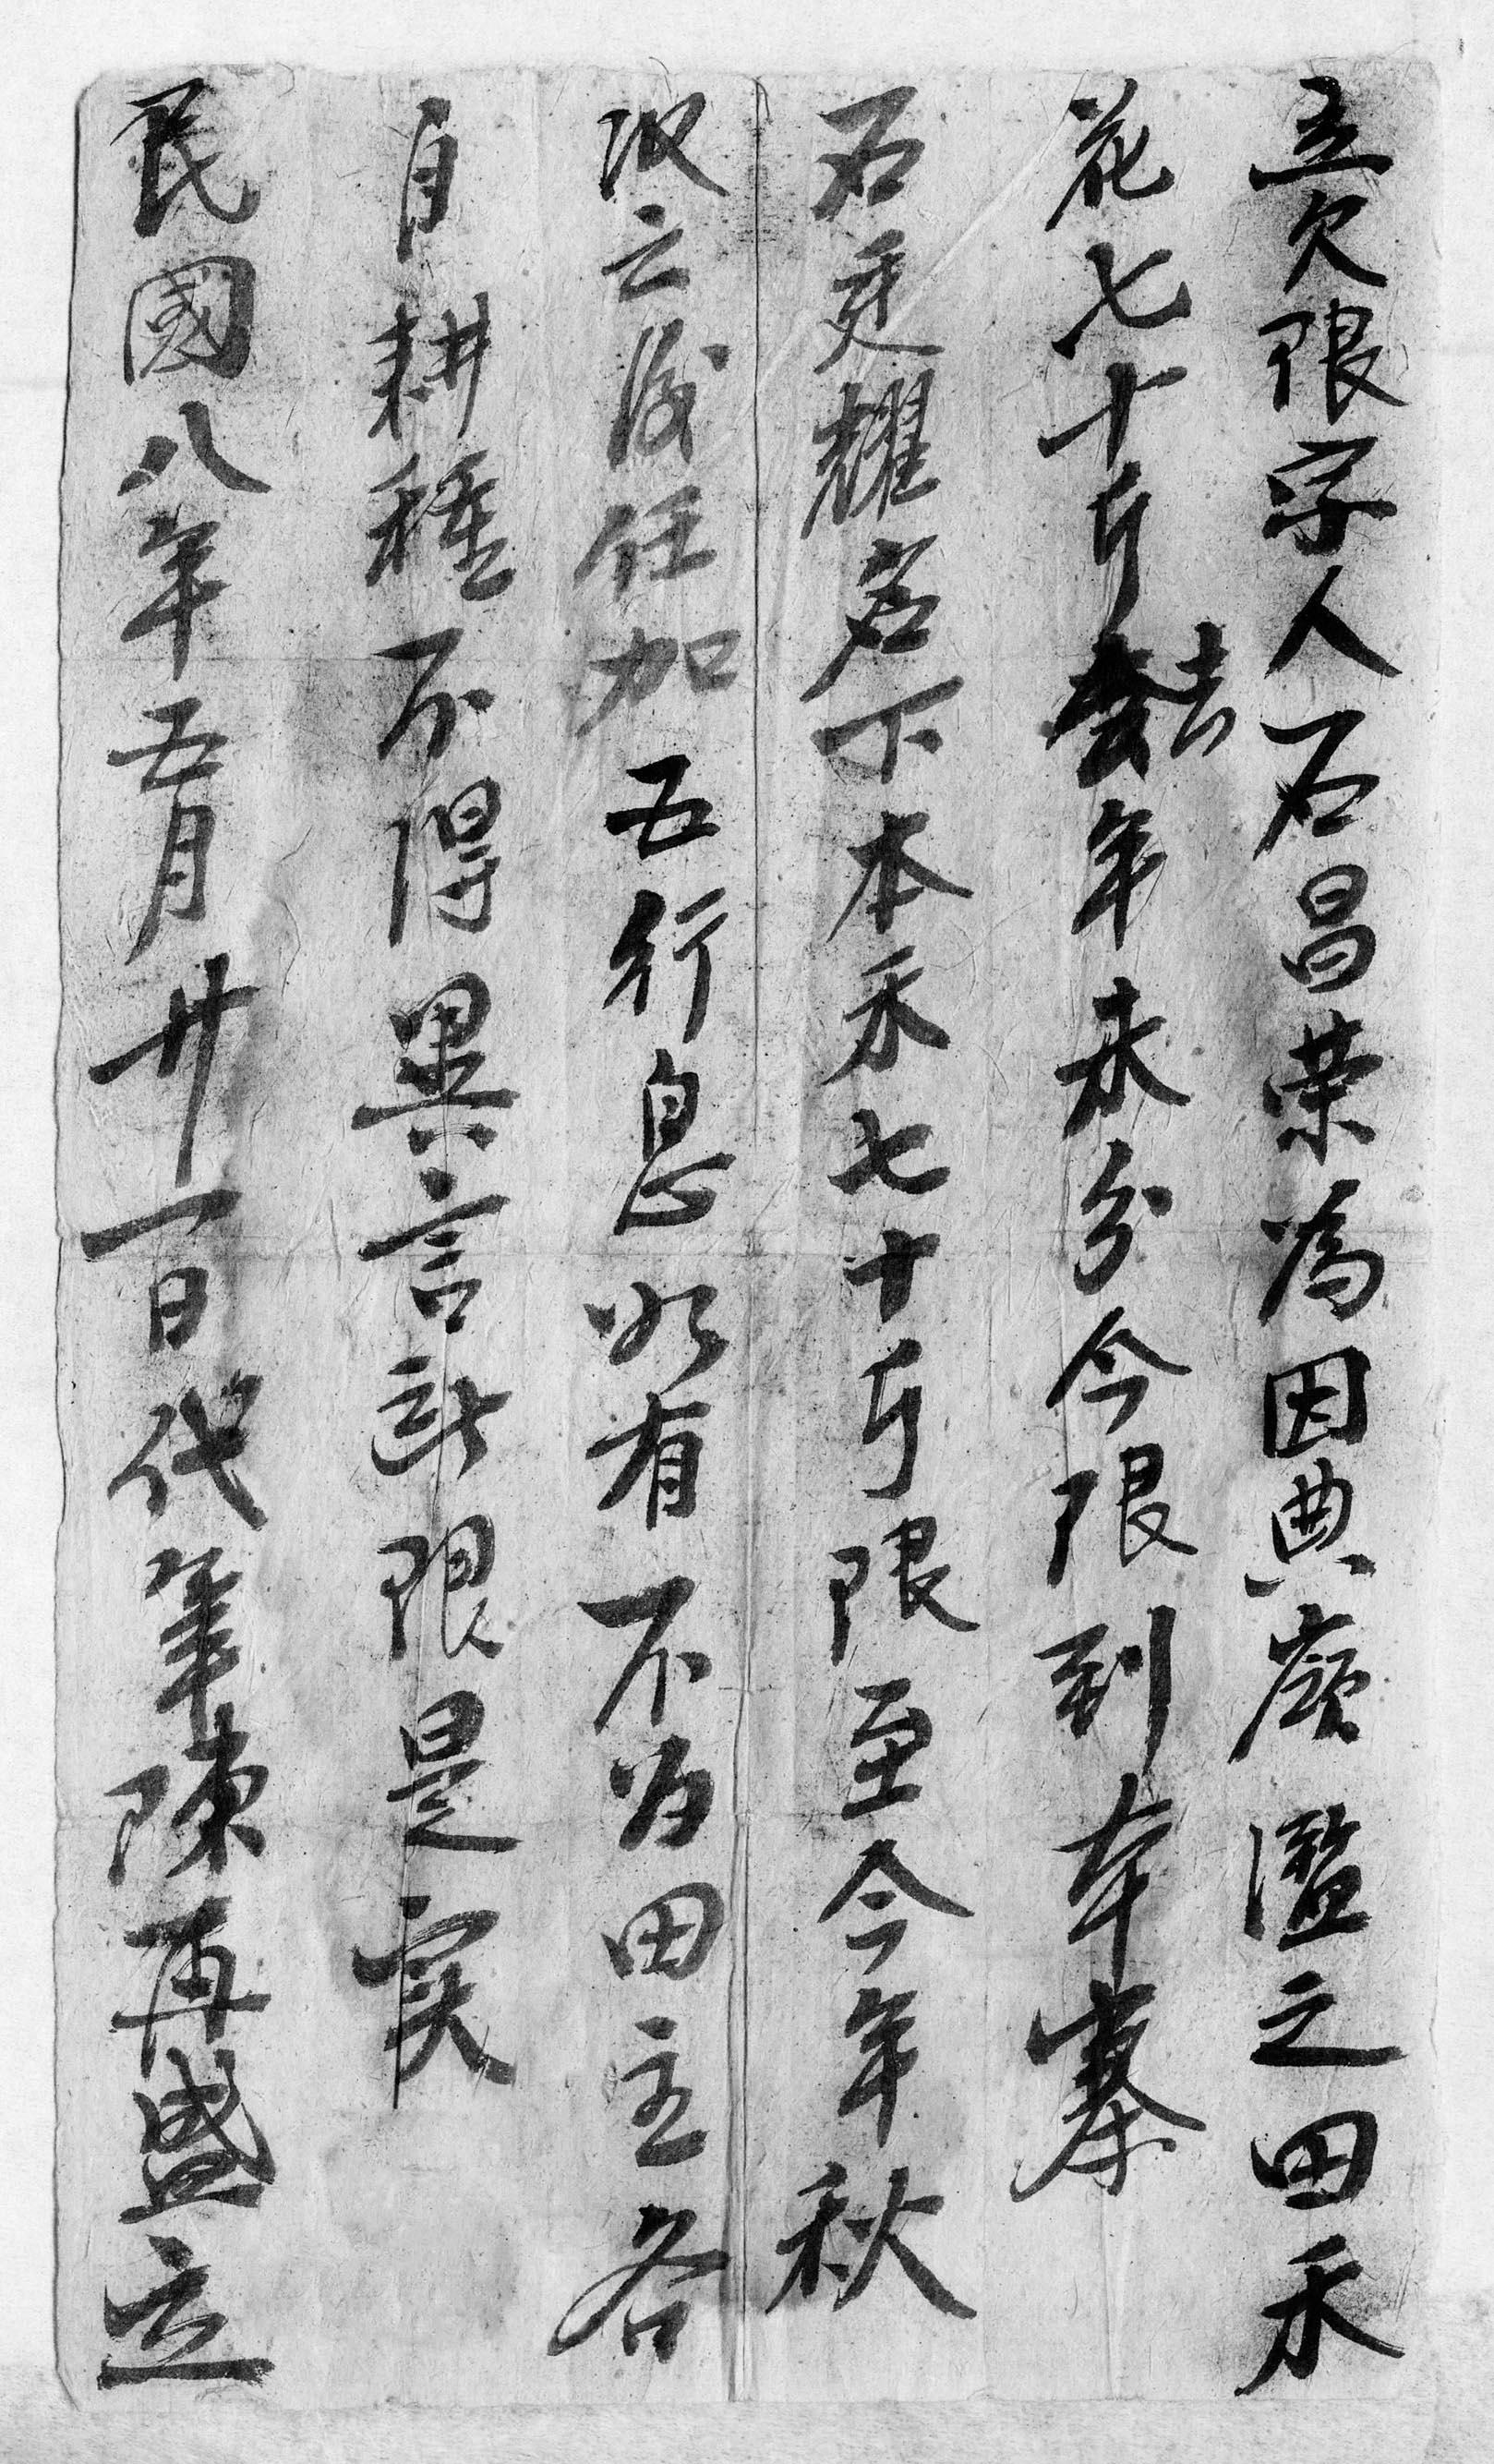 立欠限字人石昌荣為因典 之田禾
花七十斤去年未分今限到本寨
石 耀名下本禾七十斤限至今年秋
收之後任加五行息如有不為田主各
自耕種不得異言此限是実
民國八年五月廿一日代筆陳再盛立